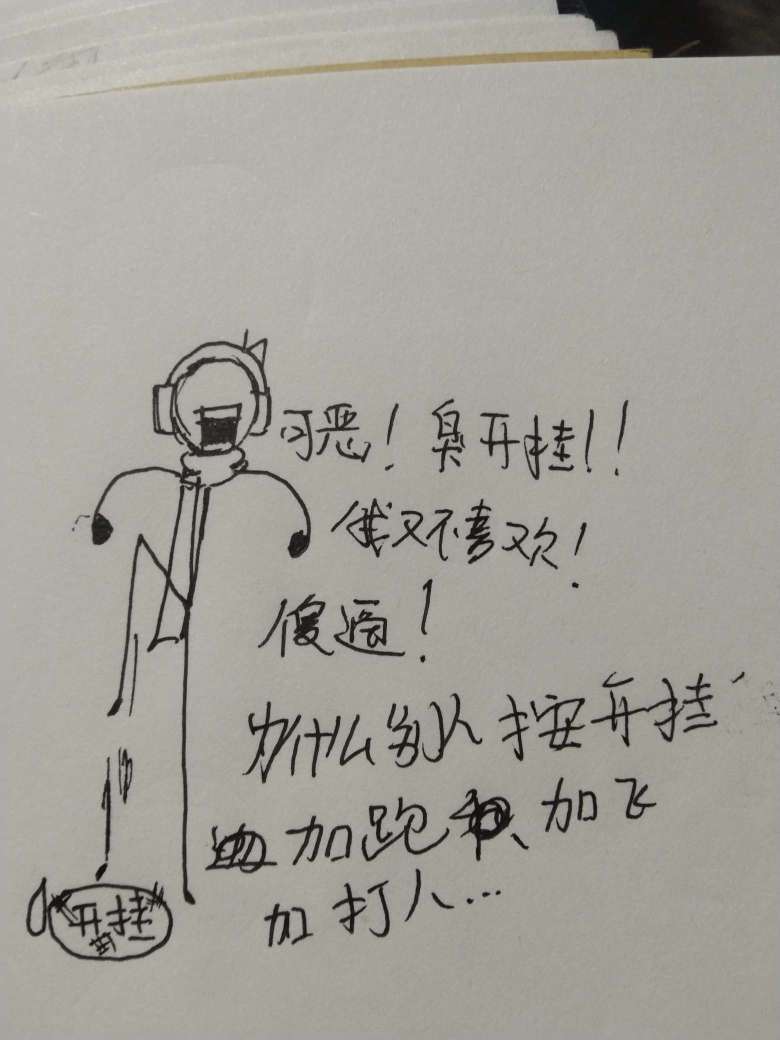 可恶！臭开挂！！
我又不喜欢！
傻逼！
为什么别人按开挂
加跑 加飞
加打人…
"开挂"